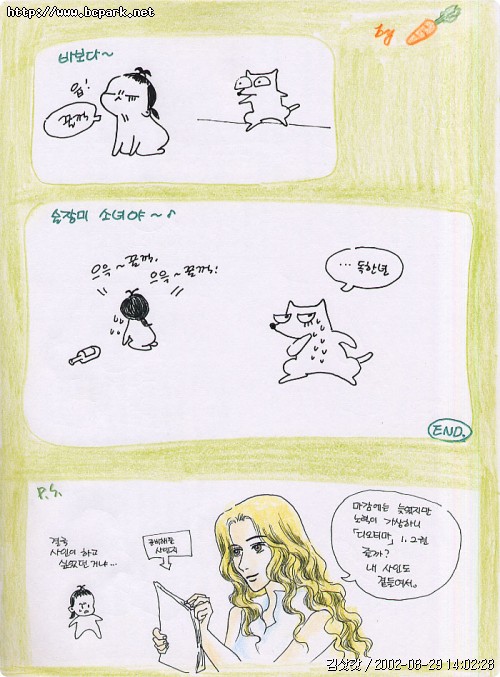 http://www.bcpark.net
by
바보다~
읍!
꿀꺽
술장미 소녀야~♪
으윽~꿀꺽.
으윽~꿀꺽!
... 독한년
END.
P.S.
결국
사인이 하고
싶었던 거냐...
사인지
마감에는 늦었지만
노력이 가상하니
「디오티마」 1.2권
줄까?
내 사인도
곁들여서.
김삿갓 / 2002-08-29 14:02:28